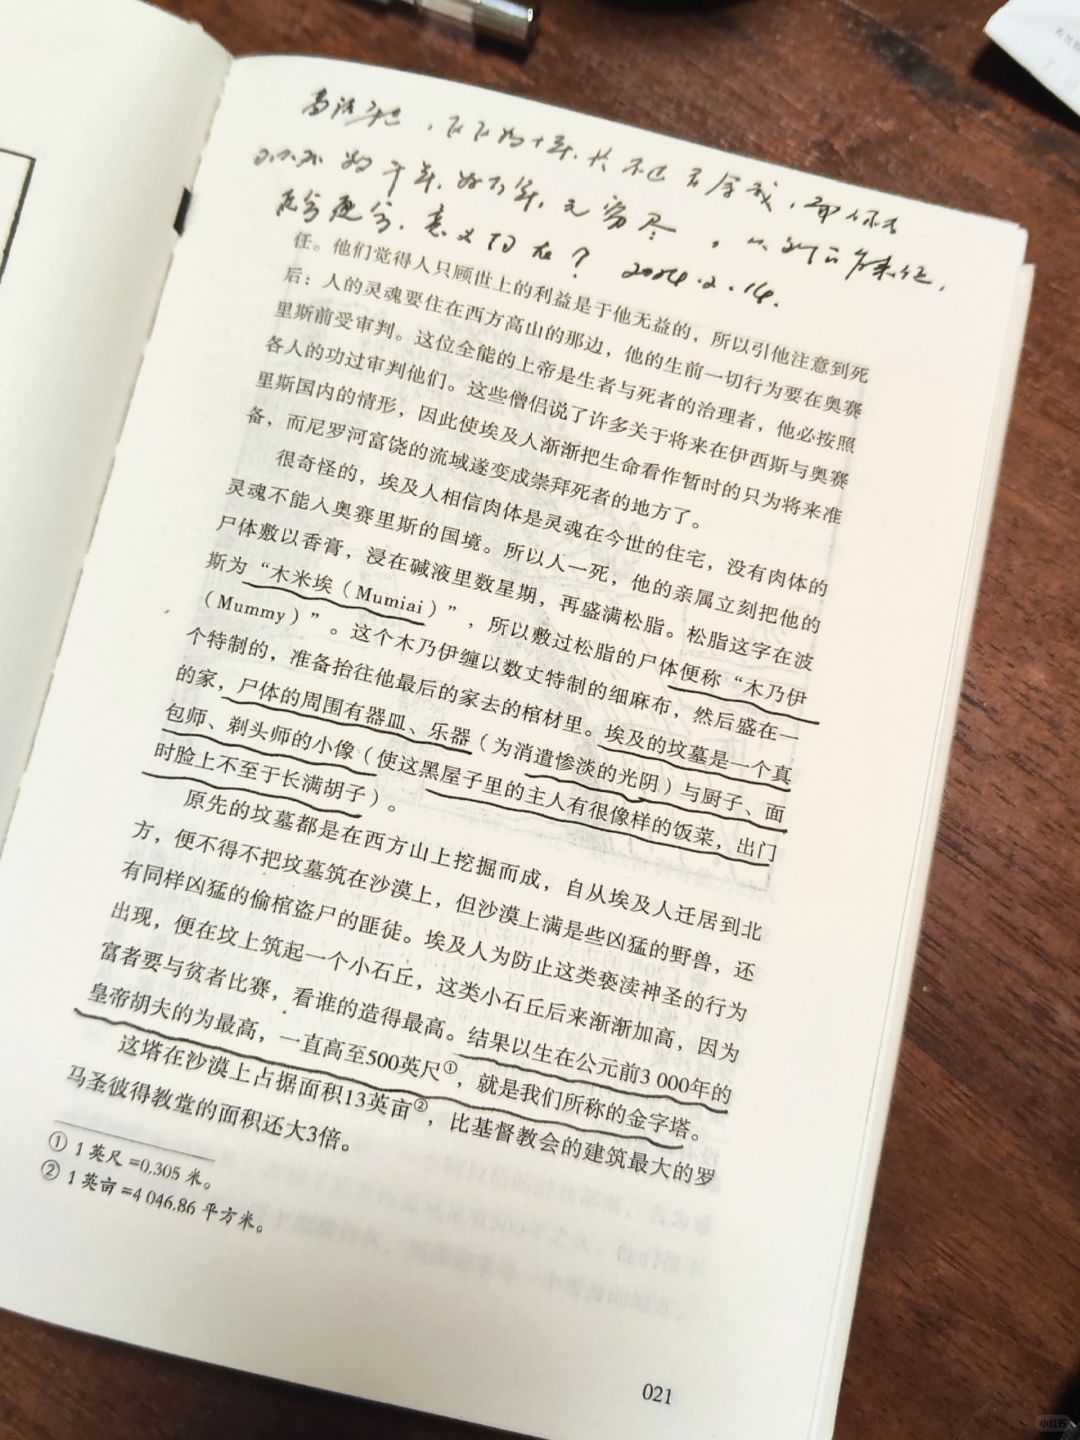 数千年,
意义何在? 2024.2.14.
任。他们觉得人只顾世上的利益是于他无益的，所以引他注意到死
后：人的灵魂要住在西方高山的那边，他的生前一切行为要在奥赛
里斯前受审判。这位全能的上帝是生者与死者的治理者，他必按照
各人的功过审判他们。这些僧侣说了许多关于将来在伊西斯与奥赛
里斯国内的情形，因此使埃及人渐渐把生命看作暂时的只为将来准
备，而尼罗河富饶的流域遂变成崇拜死者的地方了。
很奇怪的，埃及人相信肉体是灵魂在今世的住宅，没有肉体的
灵魂不能入奥赛里斯的国境。所以人一死，他的亲属立刻把他的
尸体敷以香膏，浸在碱液里数星期，再盛满松脂。松脂这字在波
斯为“木米埃（Mumiai）”，所以敷过松脂的尸体便称“木乃伊
（Mummy）”。这个木乃伊缠以数丈特制的细麻布，然后盛在一
个特制的，准备抬往他最后的家去的棺材里。埃及的坟墓是一个真
的家，尸体的周围有器皿、乐器（为消遣惨淡的光阴）与厨子、面
包师、剃头师的小像（使这黑屋子里的主人有很像样的饭菜，出门
时脸上不至于长满胡子）。
原先的坟墓都是在西方山上挖掘而成，自从埃及人迁居到北
方，便不得不把坟墓筑在沙漠上，但沙漠上满是些凶猛的野兽，还
有同样凶猛的偷棺盗尸的匪徒。埃及人为防止这类亵渎神圣的行为
出现，便在坟上筑起一个小石丘，这类小石丘后来渐渐加高，因为
富者要与贫者比赛，看谁的造得最高。结果以生在公元前3 000年的
皇帝胡夫的为最高，一直高至500英尺①，就是我们所称的金字塔。
这塔在沙漠上占据面积13英亩②，比基督教会的建筑最大的罗
马圣彼得教堂的面积还大3倍。
① 1 英尺 =0.305 米。
② 1 英亩 =4 046.86 平方米。
021
小红书